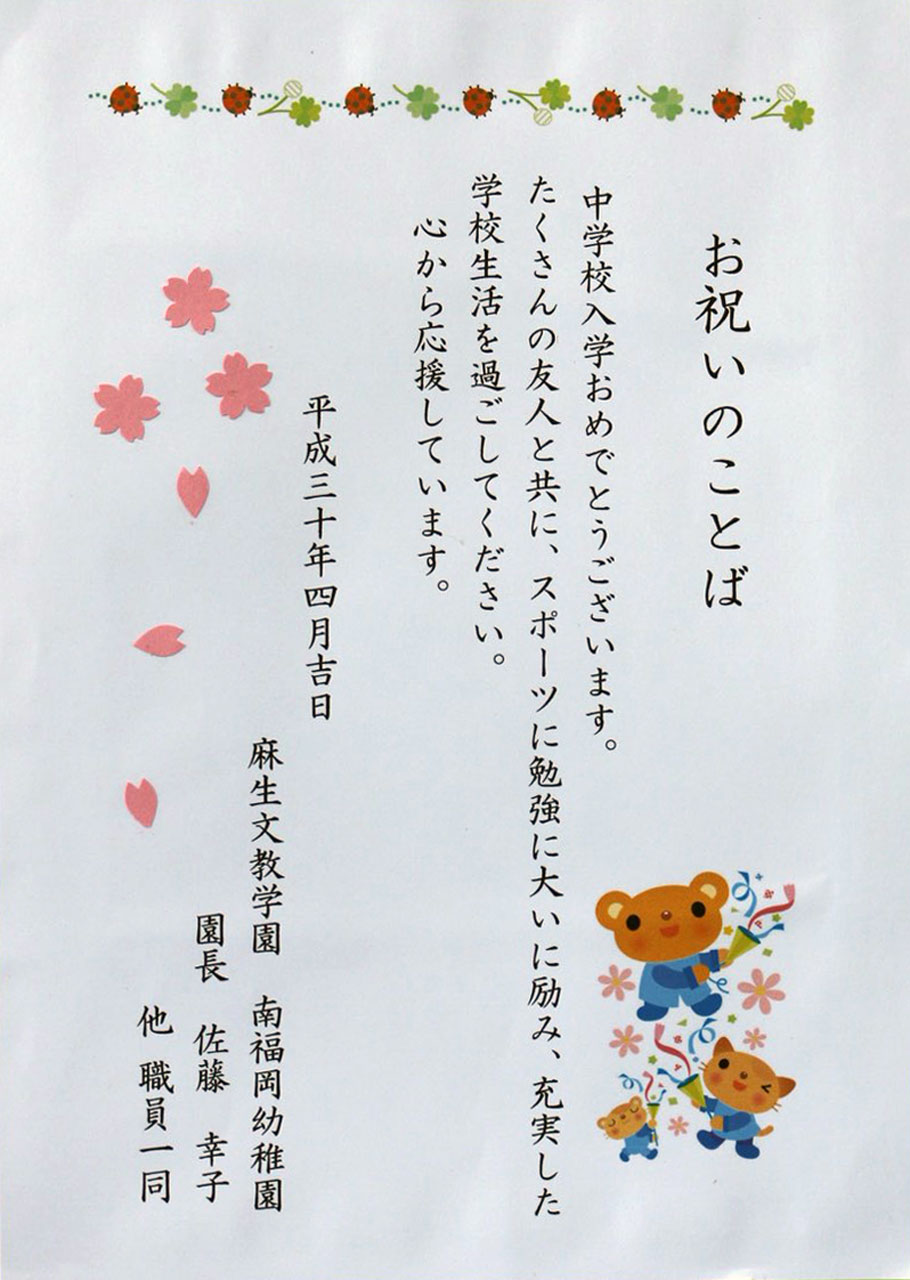 お祝いのことば
中学校入学おめでとうございます。
たくさんの友人と共に、スポーツに勉強に大いに励み、充実した
学校生活を過ごしてください。
心から応援しています。
平成三十年四月吉日
麻生文教学園　南福岡幼稚園
園長　佐藤　幸子
他　職員一同